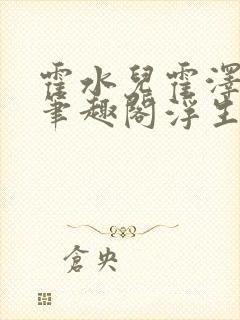 霍水兒霍澤
筆趣閣浮生
倉央